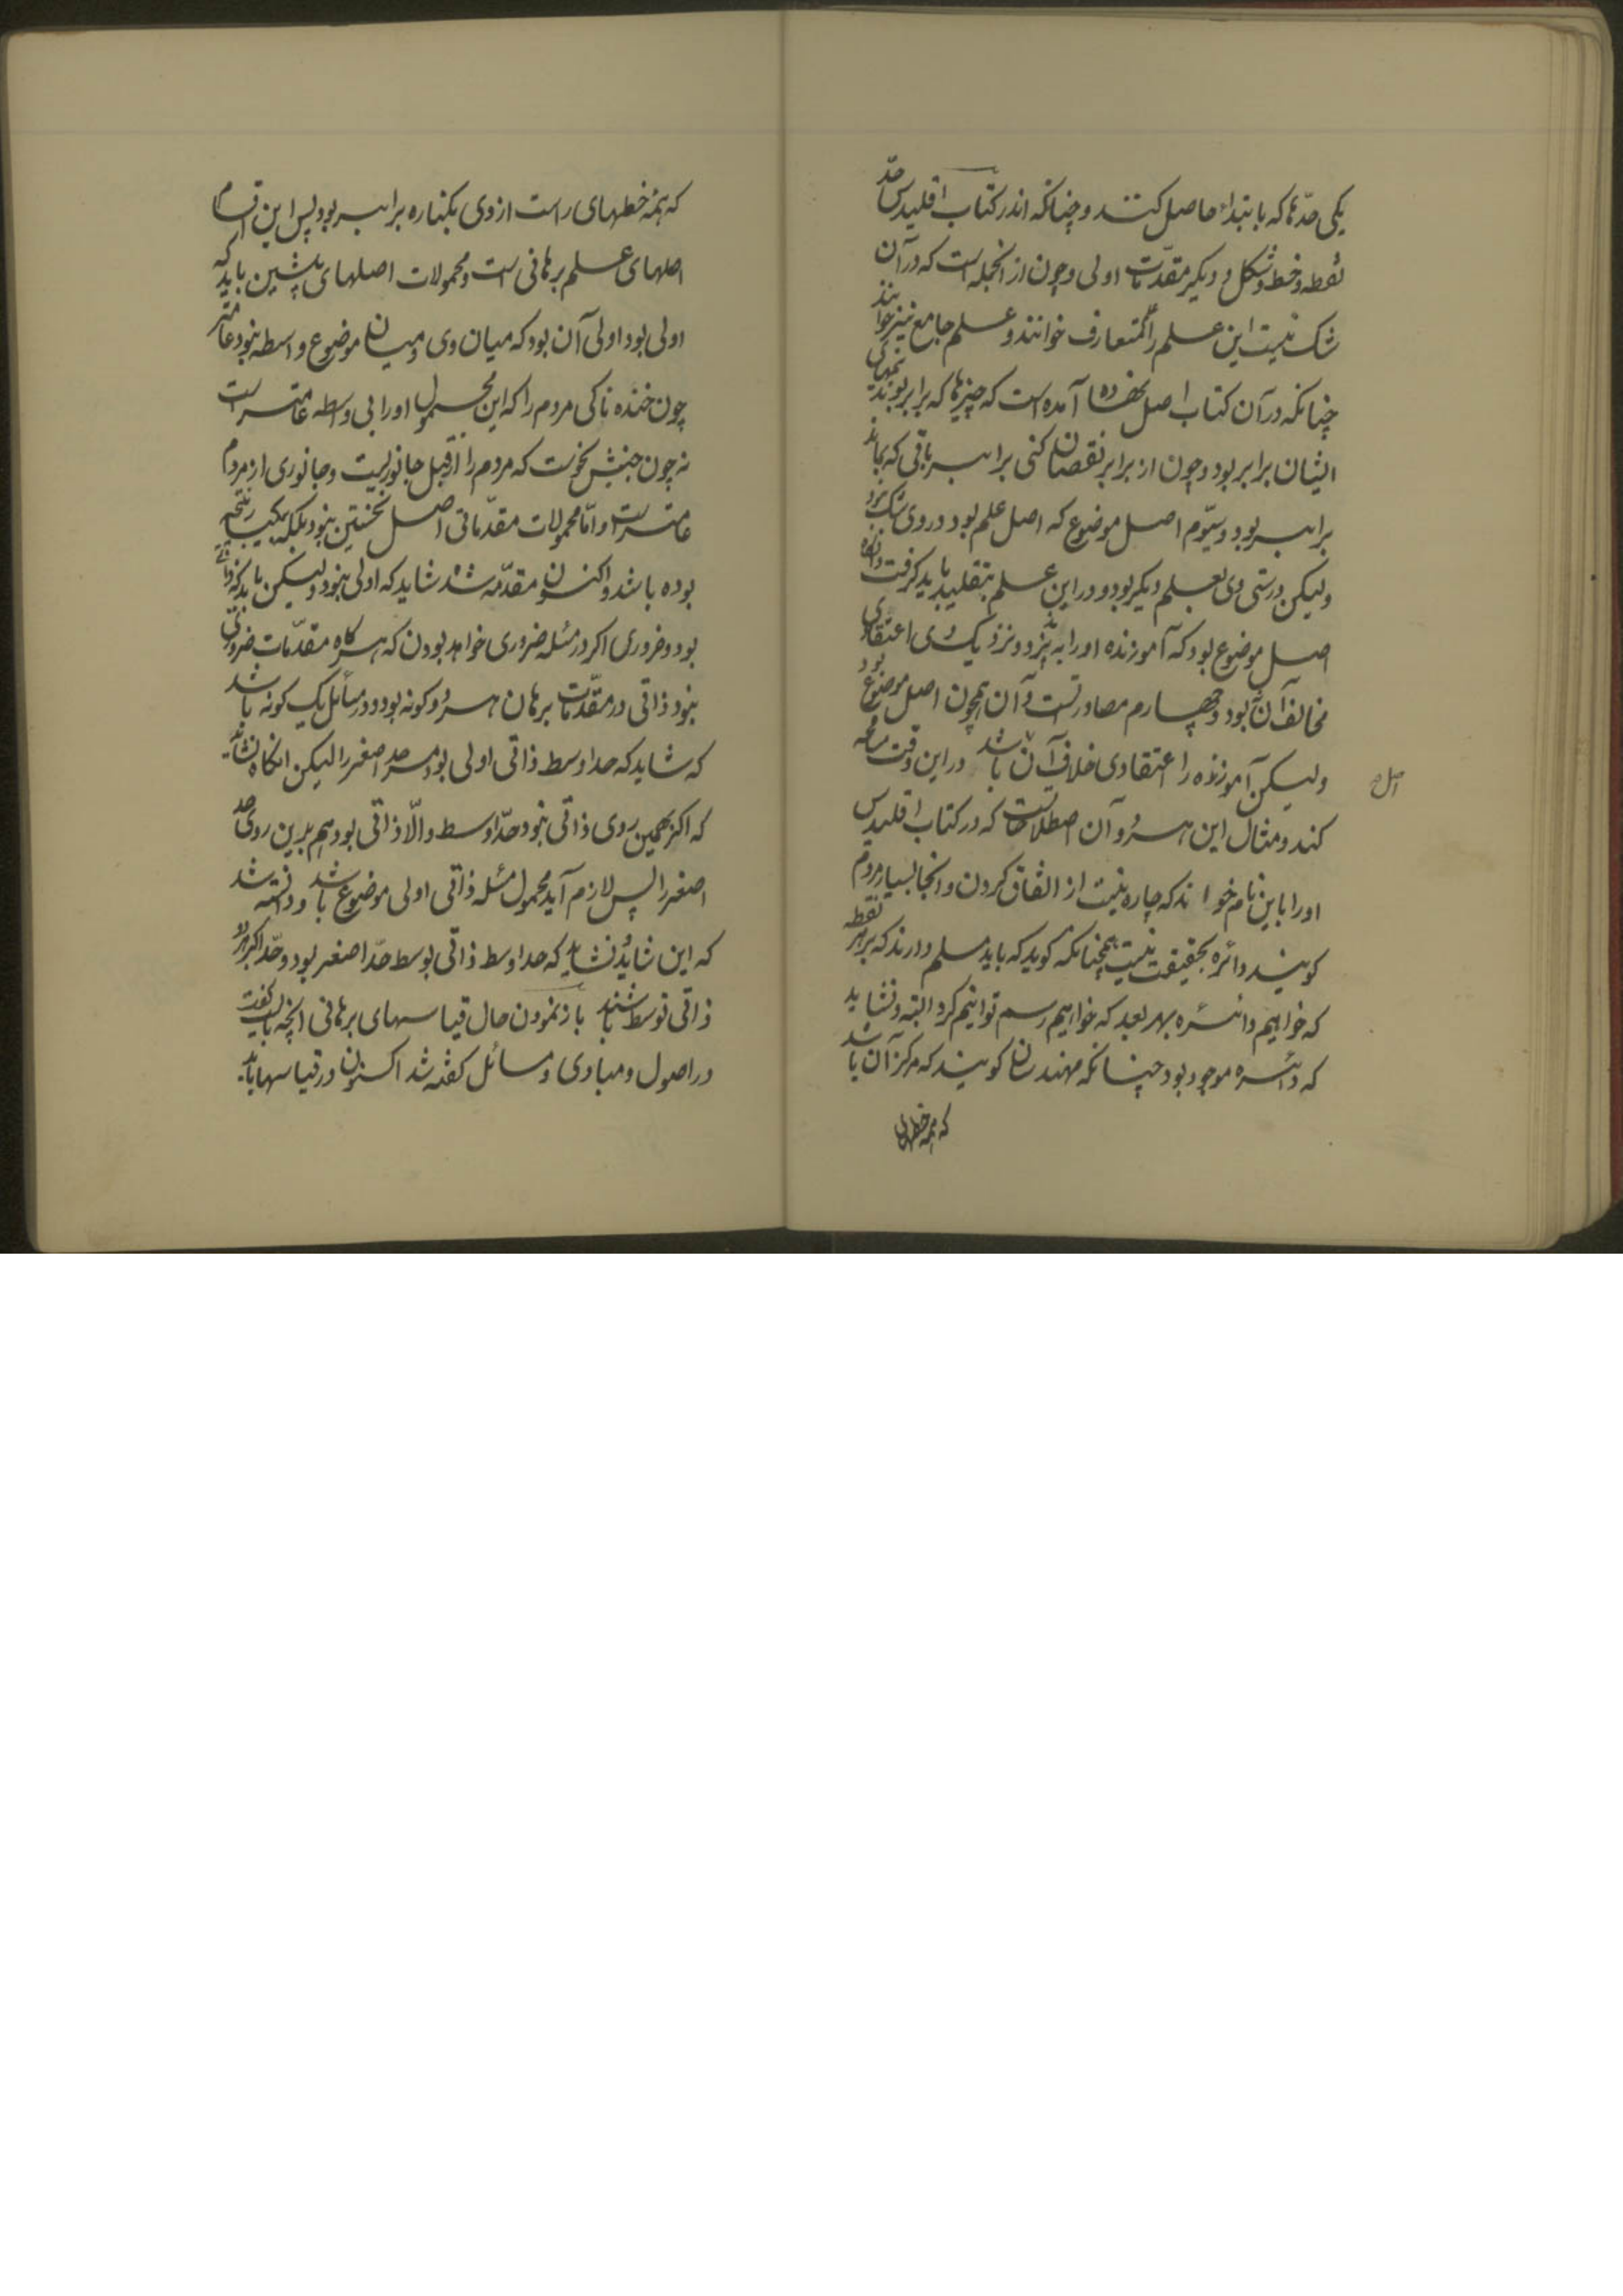 یکی حدّها که بابتداء حاصل کنند و چنانکه اندر کتاب اقلیدس حدّ
نقطه و خط و شکل و دیگر مقدّمات اولی و چون از انجمله است که در آن
شک نیست این علم را متعارف خوانند و علم جامع نیز خوانند
چنانکه در آن کتاب اصل نهاده آمده است که چیزها که برابر بوند نیمهای
ایشان برابر بود و چون از برابر نقصان کنی برابر باقی که بماند
برابر بود و سیّوم اصل موضوع که اصل علم بود در وی شک بود
ولیکن درستی وی بعلم دیگر بود و در این علم بتقلید باید گرفت و انگاه
اصل موضوع بود که آموزنده او را بپذیرد و نزدیک وی اعتقادی
مخالف آن نبود و چهارم مصادرتست و آن همچون اصل موضوع بود
ولیکن آموزنده را اعتقادی خلاف آن باشد در این وقت مسامحه
اصل
کند و مثال این هر دو آن اصطلاحاتست که در کتاب اقلیدس
او را باین نام خوانند که چاره نیست از اتفاق کردن و انجا بسیار مردم
گویند دائره بحقیقت نیست همچنانکه گوید که باید مسلم دارند که بر هر نقطه
که خواهیم دائره بهر بعد که خواهیم رسم توانیم کرد البته و نشاید
که دائره موجود بود چنانکه مهندسان گویند که مرکز آن باشد
که همه خطهای
که همهٔ خطهای راست از وی بکناره برابر بود پس این اقسام
اصلهای علم برهانی است و محمولات اصلهای پیشین باید که
اولی بود اولی آن بود که میان وی و میان موضوع واسطه نبود عامتر
چون خنده ناکی مردم را که این محمول او را بی واسطه عامتر است
نه چون جنبش بخوست که مردم را از قبل جانوریست و جانوری از مردم
عامتر است و امّا محمولات مقدّماتی اصل نخستین نبود بلکه نتیجه
بوده باشد و اکنون مقدّمه شد شاید که اولی نبود ولیکن باید که ذاتی
بود و ضروری اگر در مسئله ضروری خواهد بودن که هر گاه مقدّمات ضروری
نبود ذاتی در مقدّمات برهان هر دو گونه بود و در مسائل یک گونه باشد
که شاید که حد اوسط ذاتی اولی بود مر حد اصغر را لیکن انگاه نشاید
که اکبر بهمین روی ذاتی نبود حدّ اوسط والّا ذاتی بود هم برین روی حد
اصغر را پس لازم آید محمول مسئله ذاتی اولی موضوع باشد و دانسته شد
که این نشاید که حد اوسط ذاتی بوسط حدّ اصغر بود و حدّ اکبر
ذاتی توسط باشند باز نمودن حال قیاسهای برهانی انچه بایست گفت
در اصول و مبادی و مسائل گفته شد اکنون در قیاسها باید